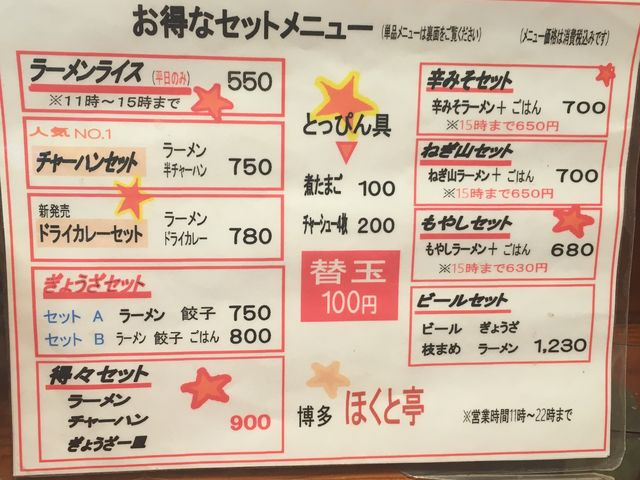 お得なセットメニュー (単品メニューは裏面をご覧ください) (メニュー価格は消費税込みです)
ラーメンライス (平日のみ) 550
※11時〜15時まで
人気 NO.1
チャーハンセット ラーメン 半チャーハン 750
新発売
ドライカレーセット ラーメン ドライカレー 780
ぎょうざセット
セット A ラーメン 餃子 750
セット B ラーメン 餃子 ごはん 800
得々セット
ラーメン
チャーハン 900
ぎょうざ一皿
とっぴん具
煮たまご 100
チャーシュー4枚 200
替玉
100円
博多 ほくと亭
辛みそセット
辛みそラーメン+ ごはん 700
※15時まで650円
ねぎ山セット
ねぎ山ラーメン+ ごはん 700
※15時まで650円
もやしセット
もやしラーメン+ ごはん 680
※15時まで630円
ビールセット
ビール ぎょうざ
枝まめ ラーメン 1,230
※営業時間11時〜22時まで